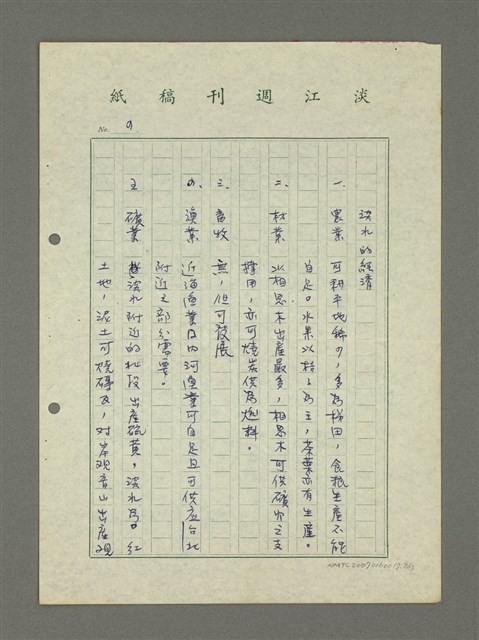 紙稿刊週江淡
No. 9
淡水的經濟
一、農業 可耕平地稀少，多為梯田，食粮生產不能
自足。水果以桔子為主，茶葉亦有生產。
二、林業 以相思木出產最多，相思木可供礦坑之支
撐用，亦可燒炭供為燃料。
三、畜牧 無，但可發展
四、漁業 近海漁業日内河漁業可自足且可供應台北
附近之部分需要。
五 礦業 淡水附近的北投出產硫黃，淡水為紅
土地，泥土可燒磚瓦，對岸观音山出產观